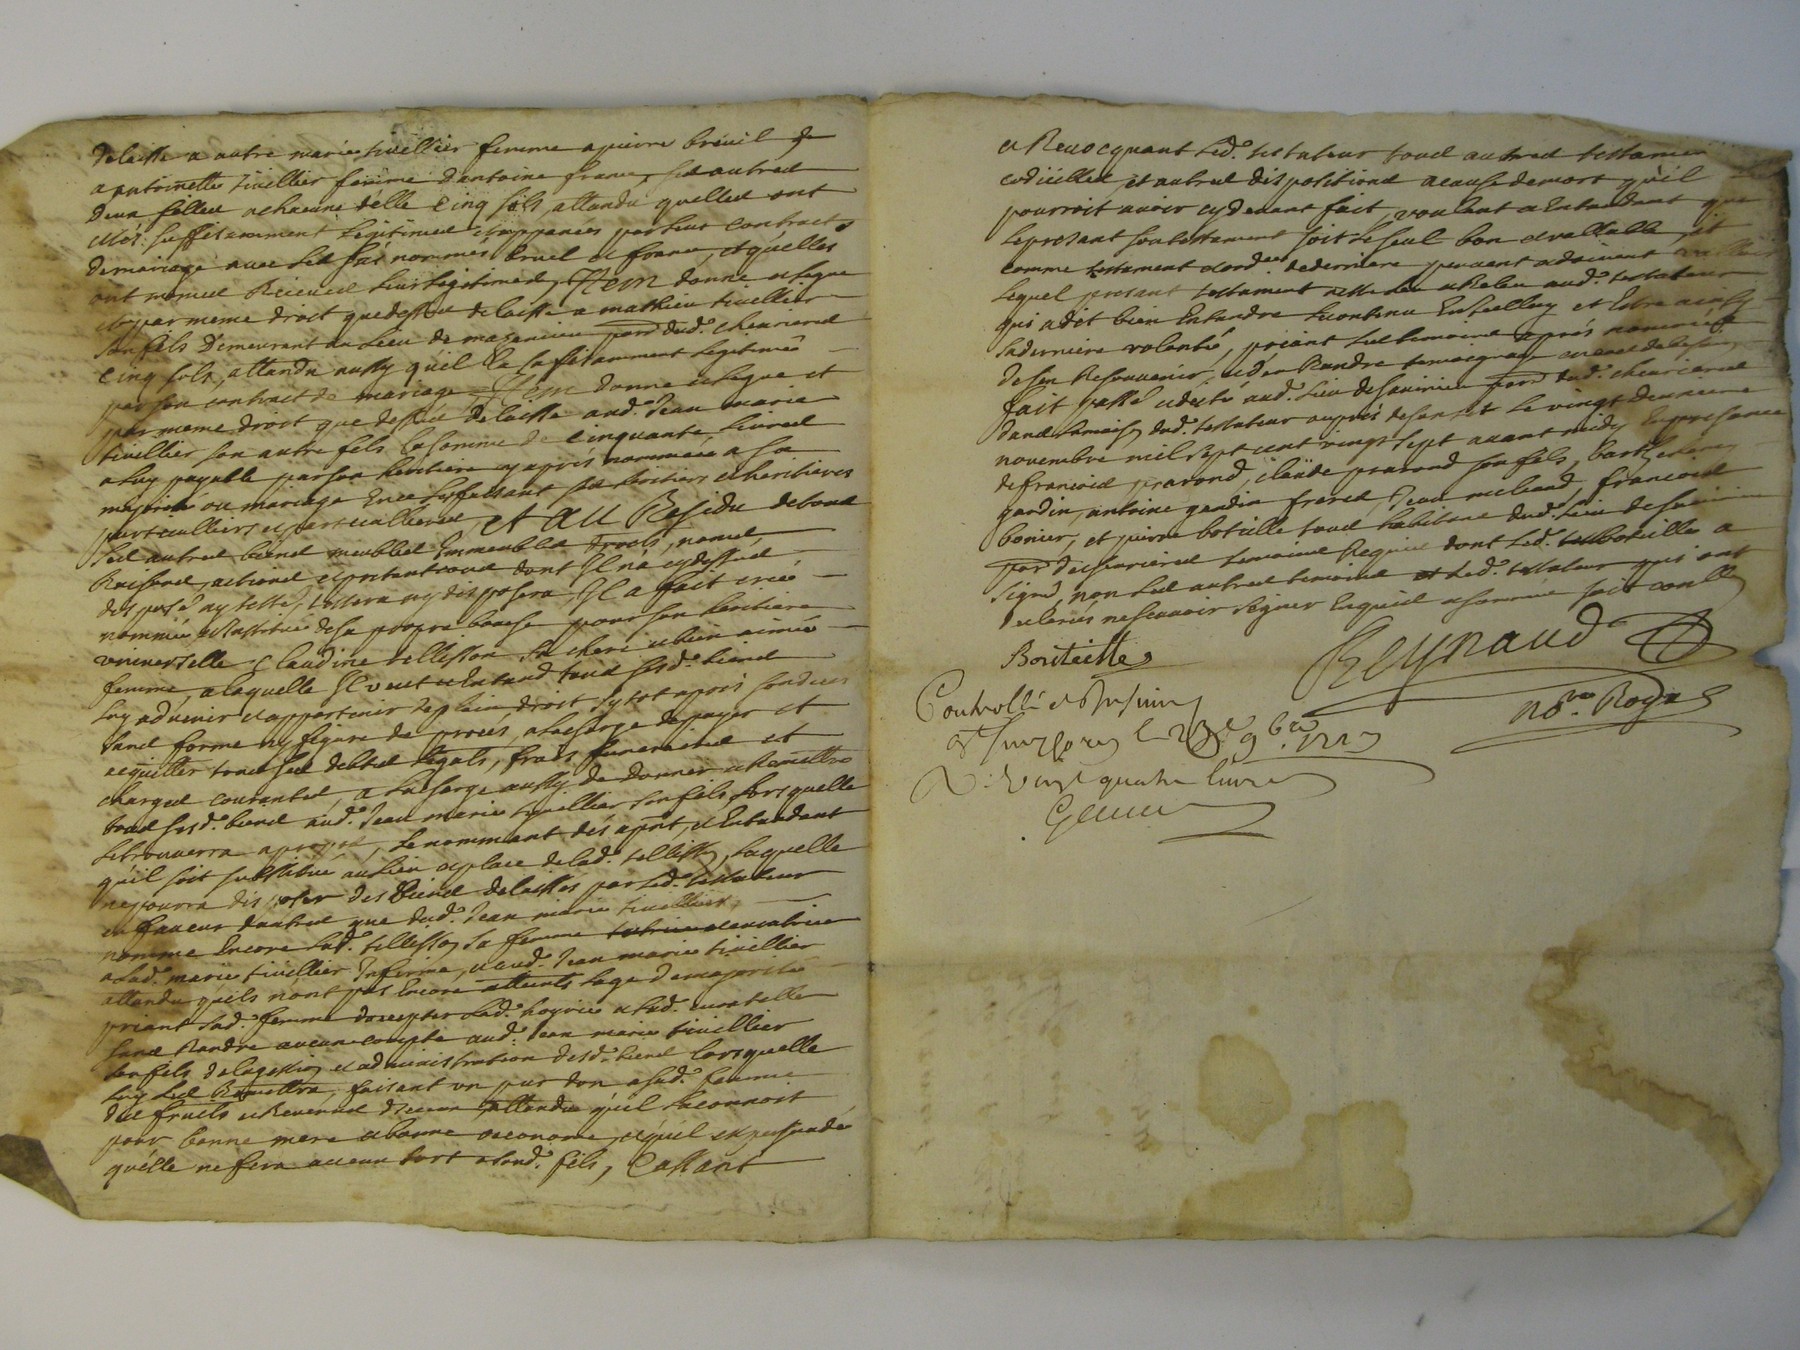 delaisse a autre marie tivellier femme a pierre breüil &
a antoinette tivellier femme dantoine franc, ses autres
deux filles a chacune delle cinq sols, attandu quelles ont
estés suffisamment legitimées par leur contract
de mariage avec les sus nommés bruel et franc, et quelles
ont mesmes Receües leurs legitimes, Item donne et legue
et par meme droit que dessus delaisse a mathieu tivellier
son fils demeurant au lieu de parr. dud. chenieres
cinq sols, attandu aussy qu'il la sufisamment legitimé
par son contract de mariage, Item donne et legue et
par meme droit que dessus delaisse aud. Jean marie
tivellier son autre fils la somme de cinquante livres
a luy payable par son heritiere cy aprés nommée a sa
majorité ou mariage En ce les faisant ses heritiers et heritieres
particulliers et particullieres, et au Residu de tous
ses autres biens meubles Immeubles droits, noms,
Raisons, actions et pretentions dont Il n'a cy dessus
disposé ny testé, testera ny disposera Il a fait creé
nommée et Institue de sa propre bouche pour son heritiere
universelle Claudine tellisson sa chere et bien aimée
femme, a laquelle Il veut et Entend tous sesd. biens
luy advenir et appartenir de plain droit sytot aprés son deces
sans forme ny figure de procés, a la charge de payer et
acquitter tous ses debtes legats, frais funeraires et
charges courantes, a la charge aussy de donner et Remettre
tous sesd. biens aud. Jean marie tivellier son fils lors quelle
le trouverra a propos, le nommant dés aprnt, et Entandant
qu'il soit substitué au lieu et place de lad. tellisson, laquelle
ne pourra disposer des biens delaissés par led. testateur
en faveur dautres que dud. Jean marie tivellier
nomme Encore lad. tellisson sa femme tutrice et curatrice
a lad. marie tivellier Infirme, et aud. Jean marie tivellier
attandu qu'ils n'ont pas Encore atteints lage de majorité
priant lad. femme daccepter lad. hoyrie et lad. curatelle
sans Randre aucun compte aud. Jean marie tivellier
son fils de la gestion et administration desd. biens lors quelle
luy les Remettra, faisant un pur don a sad. femme
des fruits et Revenus diceux attandu qu'il la connoit
pour bonne mere et bonne oeconome, et qu'il est persuadé
qu'elle ne fera aucun tort a sond. fils, Cassant
et Revocquant led. testateur tous autres testamen
codicilles, et autres dispositions a cause de mort qu'il
pourroit avoir cy devant fait, voulant et Entandant que
le presant son testament soit le seul bon et vallable, et
comme testament et ord.ce de derniere peuvent et doivent valloir
lequel presant testament a esté leu et Releu aud. testateur
qui a dit bien Entandre le contenu En icelluy et Estre ainsy
sa derniere volonté, priant les temoins aprés nommés
de sen Resouvenir, et den Randre temoignage
fait passé et dicté aud. lieu de parr. dud. chenieres
dans la maison dud. testateur auprés de son lit le vingt deuxieme
novembre mil sept cent vingt sept avant midy En presance
de francois pravond, claude pravond son fils, barthelemy
gardin, antoine gardin freres, Jean, francois
bonier, et pierre boteille tous habitans dud. lieu de
parr de chenieres temoins Requis dont led. boteille a
signé, non les autres temoins et led. testateur qui ont
declarés ne scavoir signer Enquis et sommé soit conllé
Bouteille Reynaud
Controllé et Insinué No.re Royal
le 9bre 1727
R. vingt quatre livres